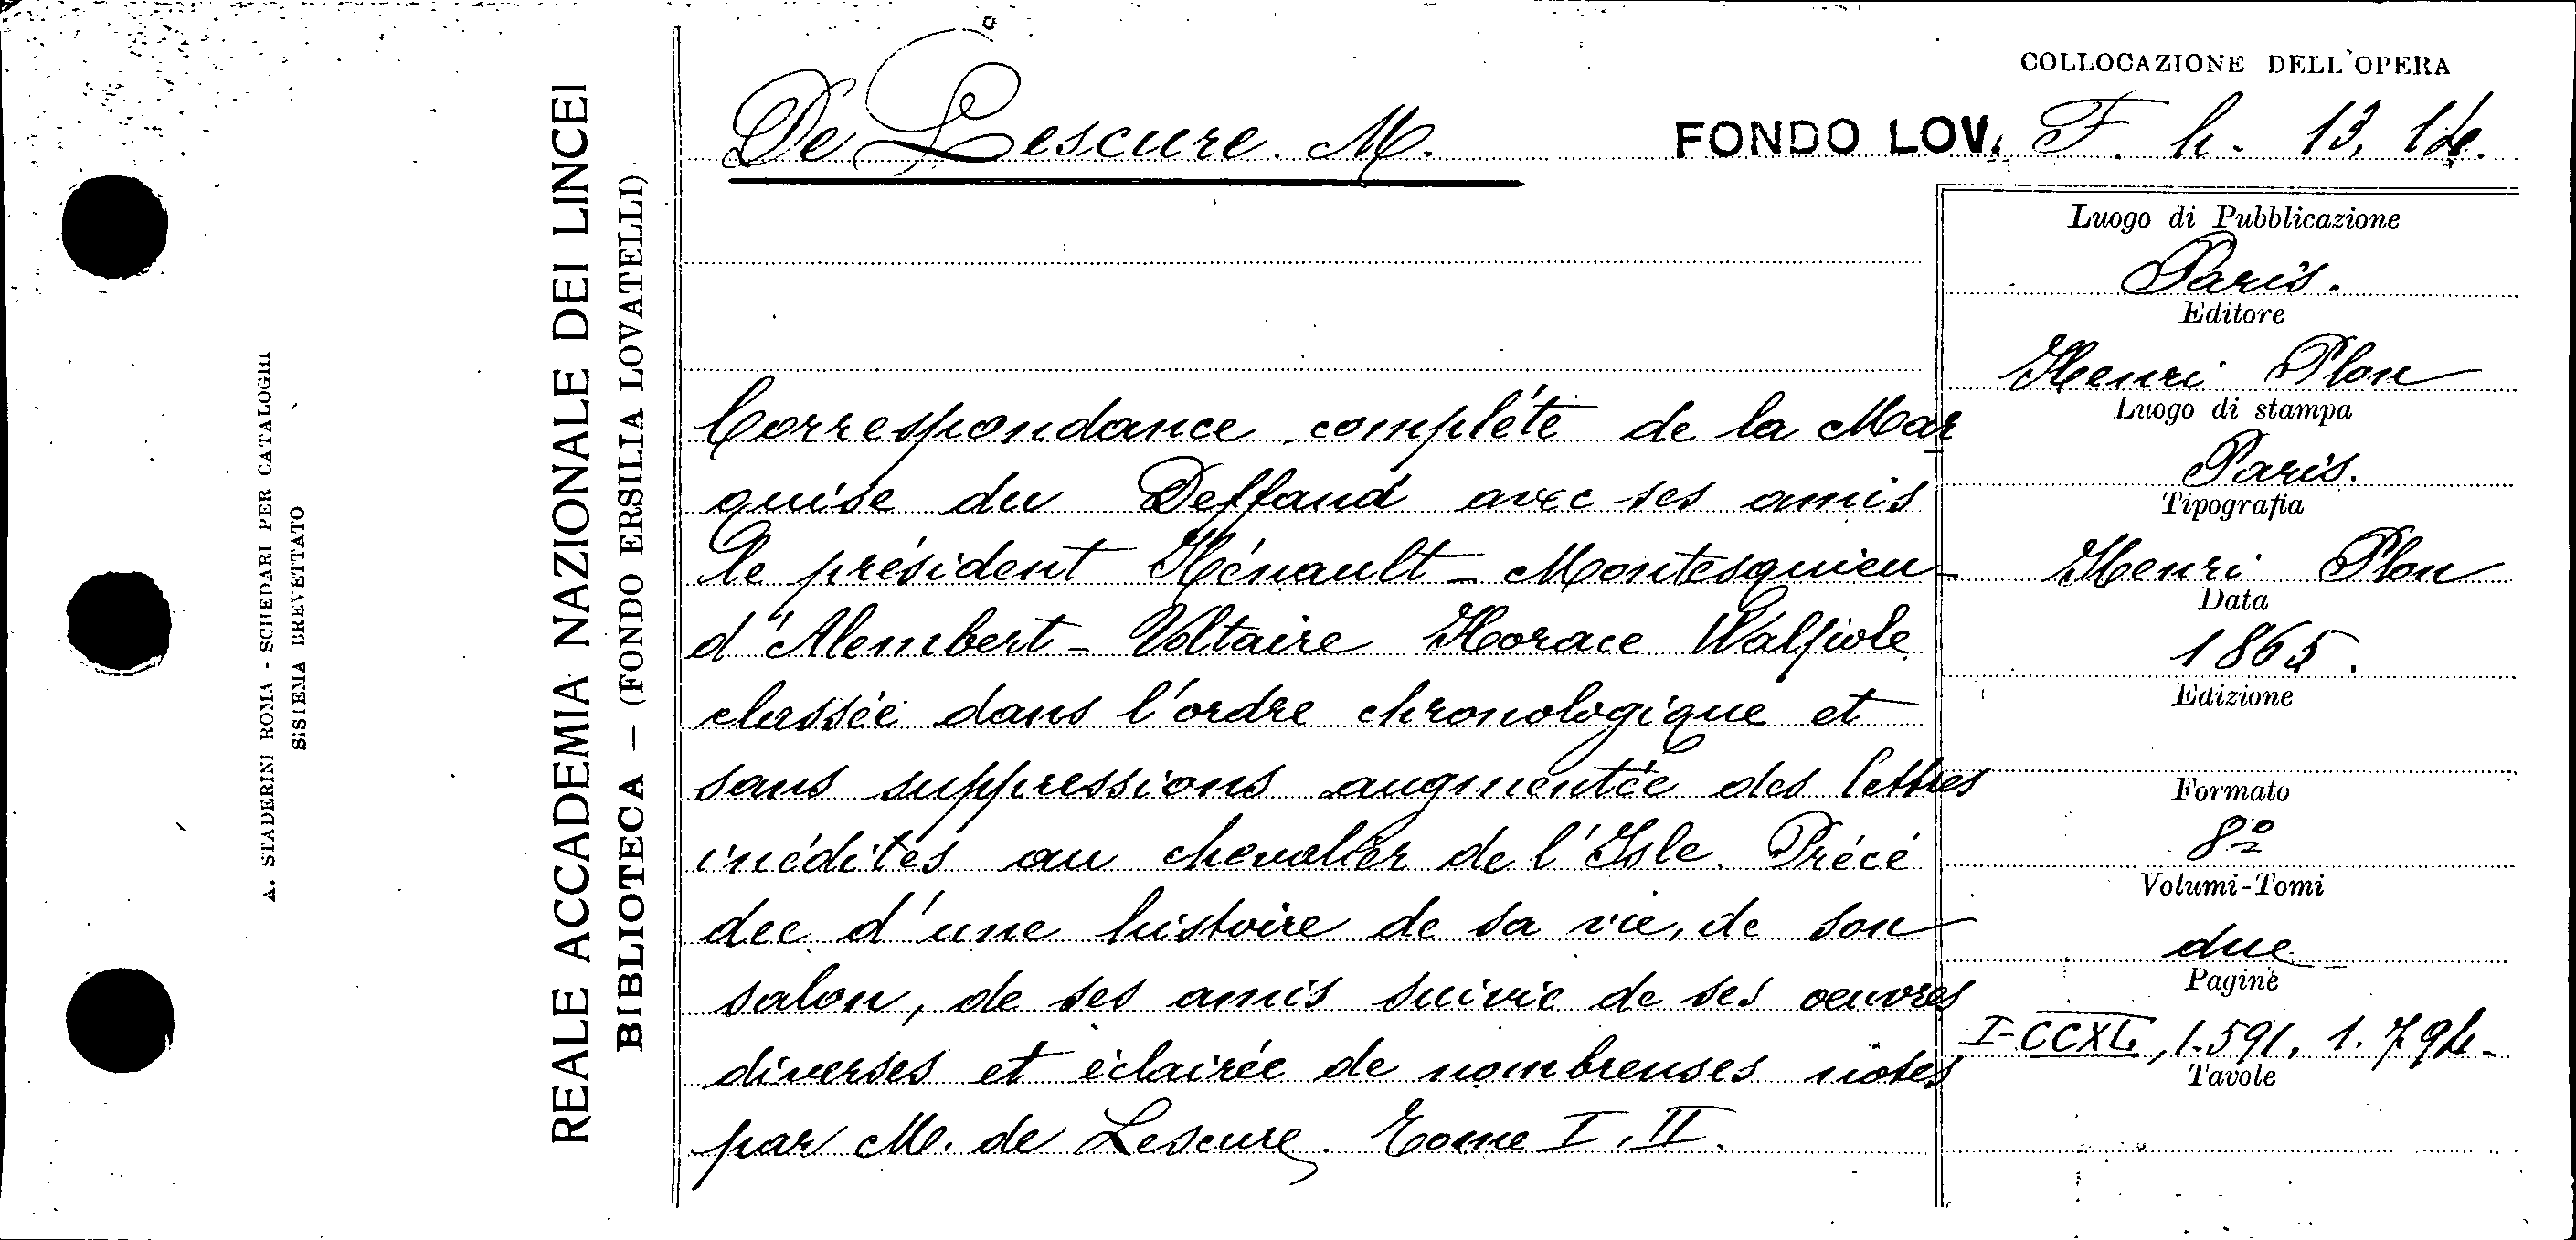 COLLOCAZIONE DELL'OPERA
De Lescure. M.
FONDO LOV. F. h. 13. 14.
REALE ACCADEMIA NAZIONALE DEI LINCEI
BIBLIOTECA — (FONDO ERSILIA LOVATELLI)
A. STADERINI ROMA - SCHEDARI PER CATALOGHI
SISTEMA BREVETTATO
Correspondance complète de la Mar
quise du Deffand avec ses amis
le président Hénault - Montesquieu
d'Alembert - Voltaire Horace Walpole
classée dans l'ordre chronologique et
sans suppressions augmentée des lettres
inédites au chevalier de l'Isle. Précé
dee d'une histoire de sa vie, de son
salon, de ses amis suivie de ses oeuvres
diverses et éclairée de nombreuses notes
par M. de Lescure. Tome I. II.
Luogo di Pubblicazione
Paris.
Editore
Henri Plon
Luogo di stampa
Paris.
Tipografia
Henri Plon
Data
1865.
Edizione
Formato
8º
Volumi-Tomi
due
Pagine
I-CCXL, 1.591. 1.794-
Tavole